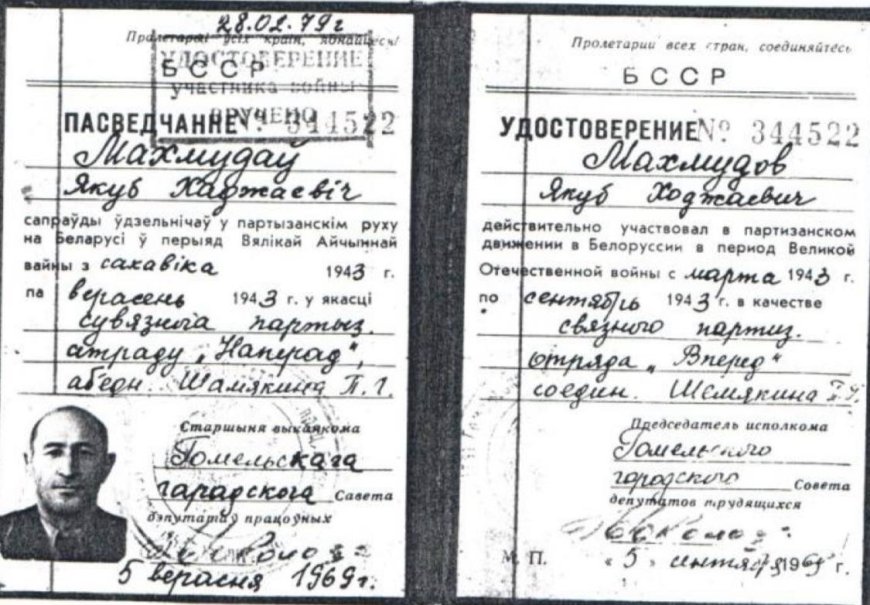 28.02.79г
Пралетарыі ўсіх краін, яднайцеся!
УДОСТОВЕРЕНИЕ
БССР
участника войны
ВРУЧЕНО
ПАСВЕДЧАННЕ № 344522
Махмудаў
Якуб Хаджаевіч
сапраўды ўдзельнічаў у партызанскім руху
на Беларусі ў перыяд Вялікай Айчыннай
вайны з сакавіка 1943 г.
па верасень 1943 г. у якасці
сувязнога партыз.
атраду „Наперад“,
аб'едн. Шамякина
Старшыня выканкома
Гомельскага
гарадскога Савета
дэпутатаў працоўных
5 верасня 1969г.
Пролетарии всех стран, соединяйтесь
БССР
УДОСТОВЕРЕНИЕ № 344522
Махмудов
Якуб Ходжаевич
действительно участвовал в партизанском
движении в Белоруссии в период Великой
Отечественной войны с марта 1943 г.
по сентябрь 1943 г. в качестве
связного партиз.
отряда „Вперед“
соедин. Шемякина
Председатель исполкома
Гомельского
городского Совета
депутатов трудящихся
М. П. « 5 » сентября 1969 г.